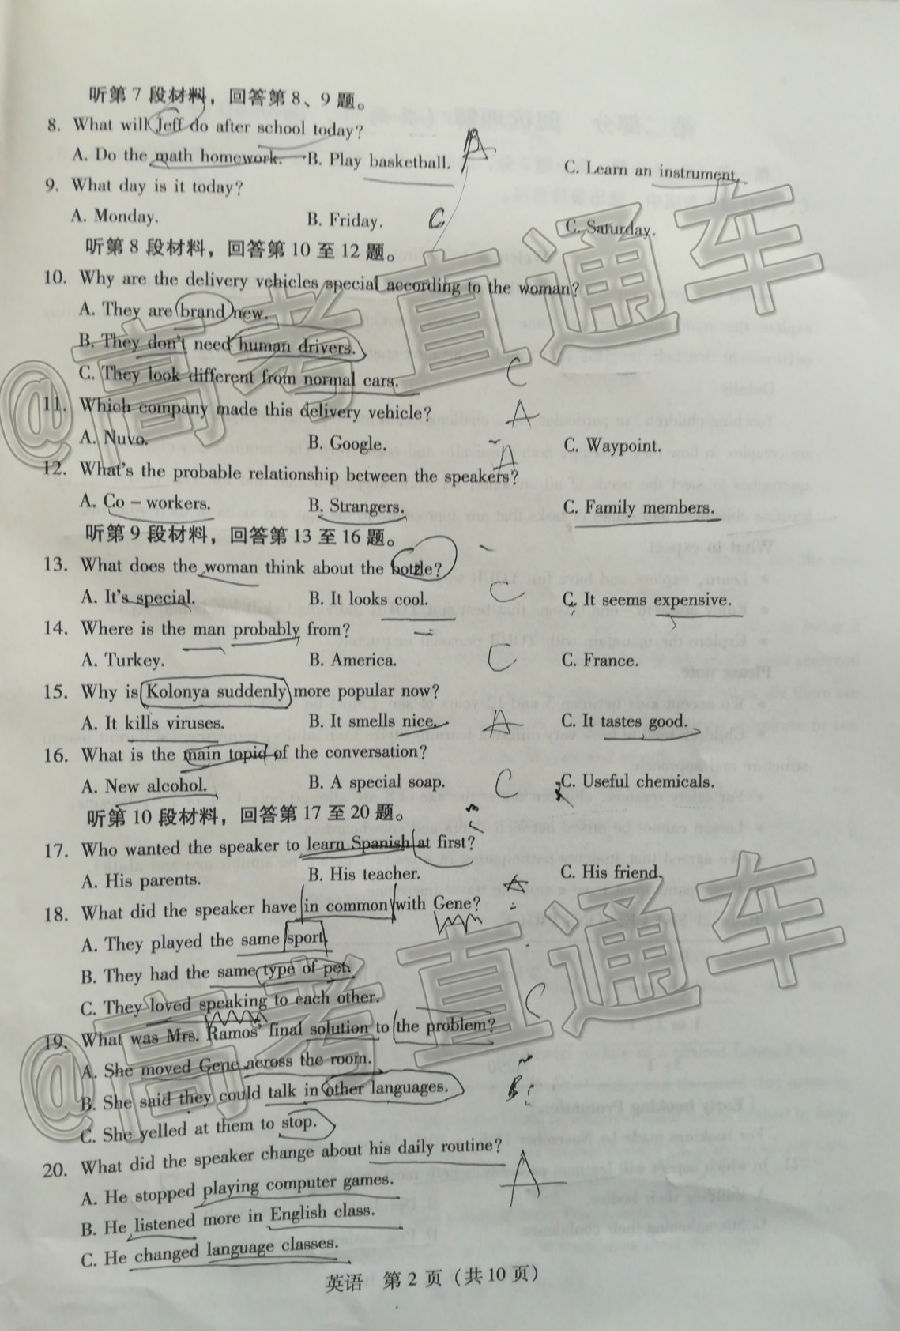 听第7段材料，回答第8、9题。
8. What will Jeff do after school today?
A. Do the math homework. B. Play basketball. C. Learn an instrument.
9. What day is it today?
A. Monday. B. Friday. C C. Saturday.
听第8段材料，回答第10至12题。
10. Why are the delivery vehicles special according to the woman?
A. They are brand new.
B. They don't need human drivers.
C. They look different from normal cars. C
11. Which company made this delivery vehicle? A
A. Nuvo. B. Google. C. Waypoint.
12. What's the probable relationship between the speakers? A
A. Co－workers. B. Strangers. C. Family members.
听第9段材料，回答第13至16题。
13. What does the woman think about the bottle?
A. It's special. B. It looks cool. C C. It seems expensive.
14. Where is the man probably from?
A. Turkey. B. America. C C. France.
15. Why is Kolonya suddenly more popular now?
A. It kills viruses. B. It smells nice. A C. It tastes good.
16. What is the main topic of the conversation?
A. New alcohol. B. A special soap. C C. Useful chemicals.
听第10段材料，回答第17至20题。
17. Who wanted the speaker to learn Spanish at first?
A. His parents. B. His teacher. C. His friend.
A
18. What did the speaker have in common with Gene?
A. They played the same sport.
B. They had the same type of pet.
C. They loved speaking to each other. C
19. What was Mrs. Ramos' final solution to the problem?
A. She moved Gene across the room.
B. She said they could talk in other languages. B
C. She yelled at them to stop.
20. What did the speaker change about his daily routine? A
A. He stopped playing computer games.
B. He listened more in English class.
C. He changed language classes.
英语 第2页（共10页）
@高考直通车
@高考直通车